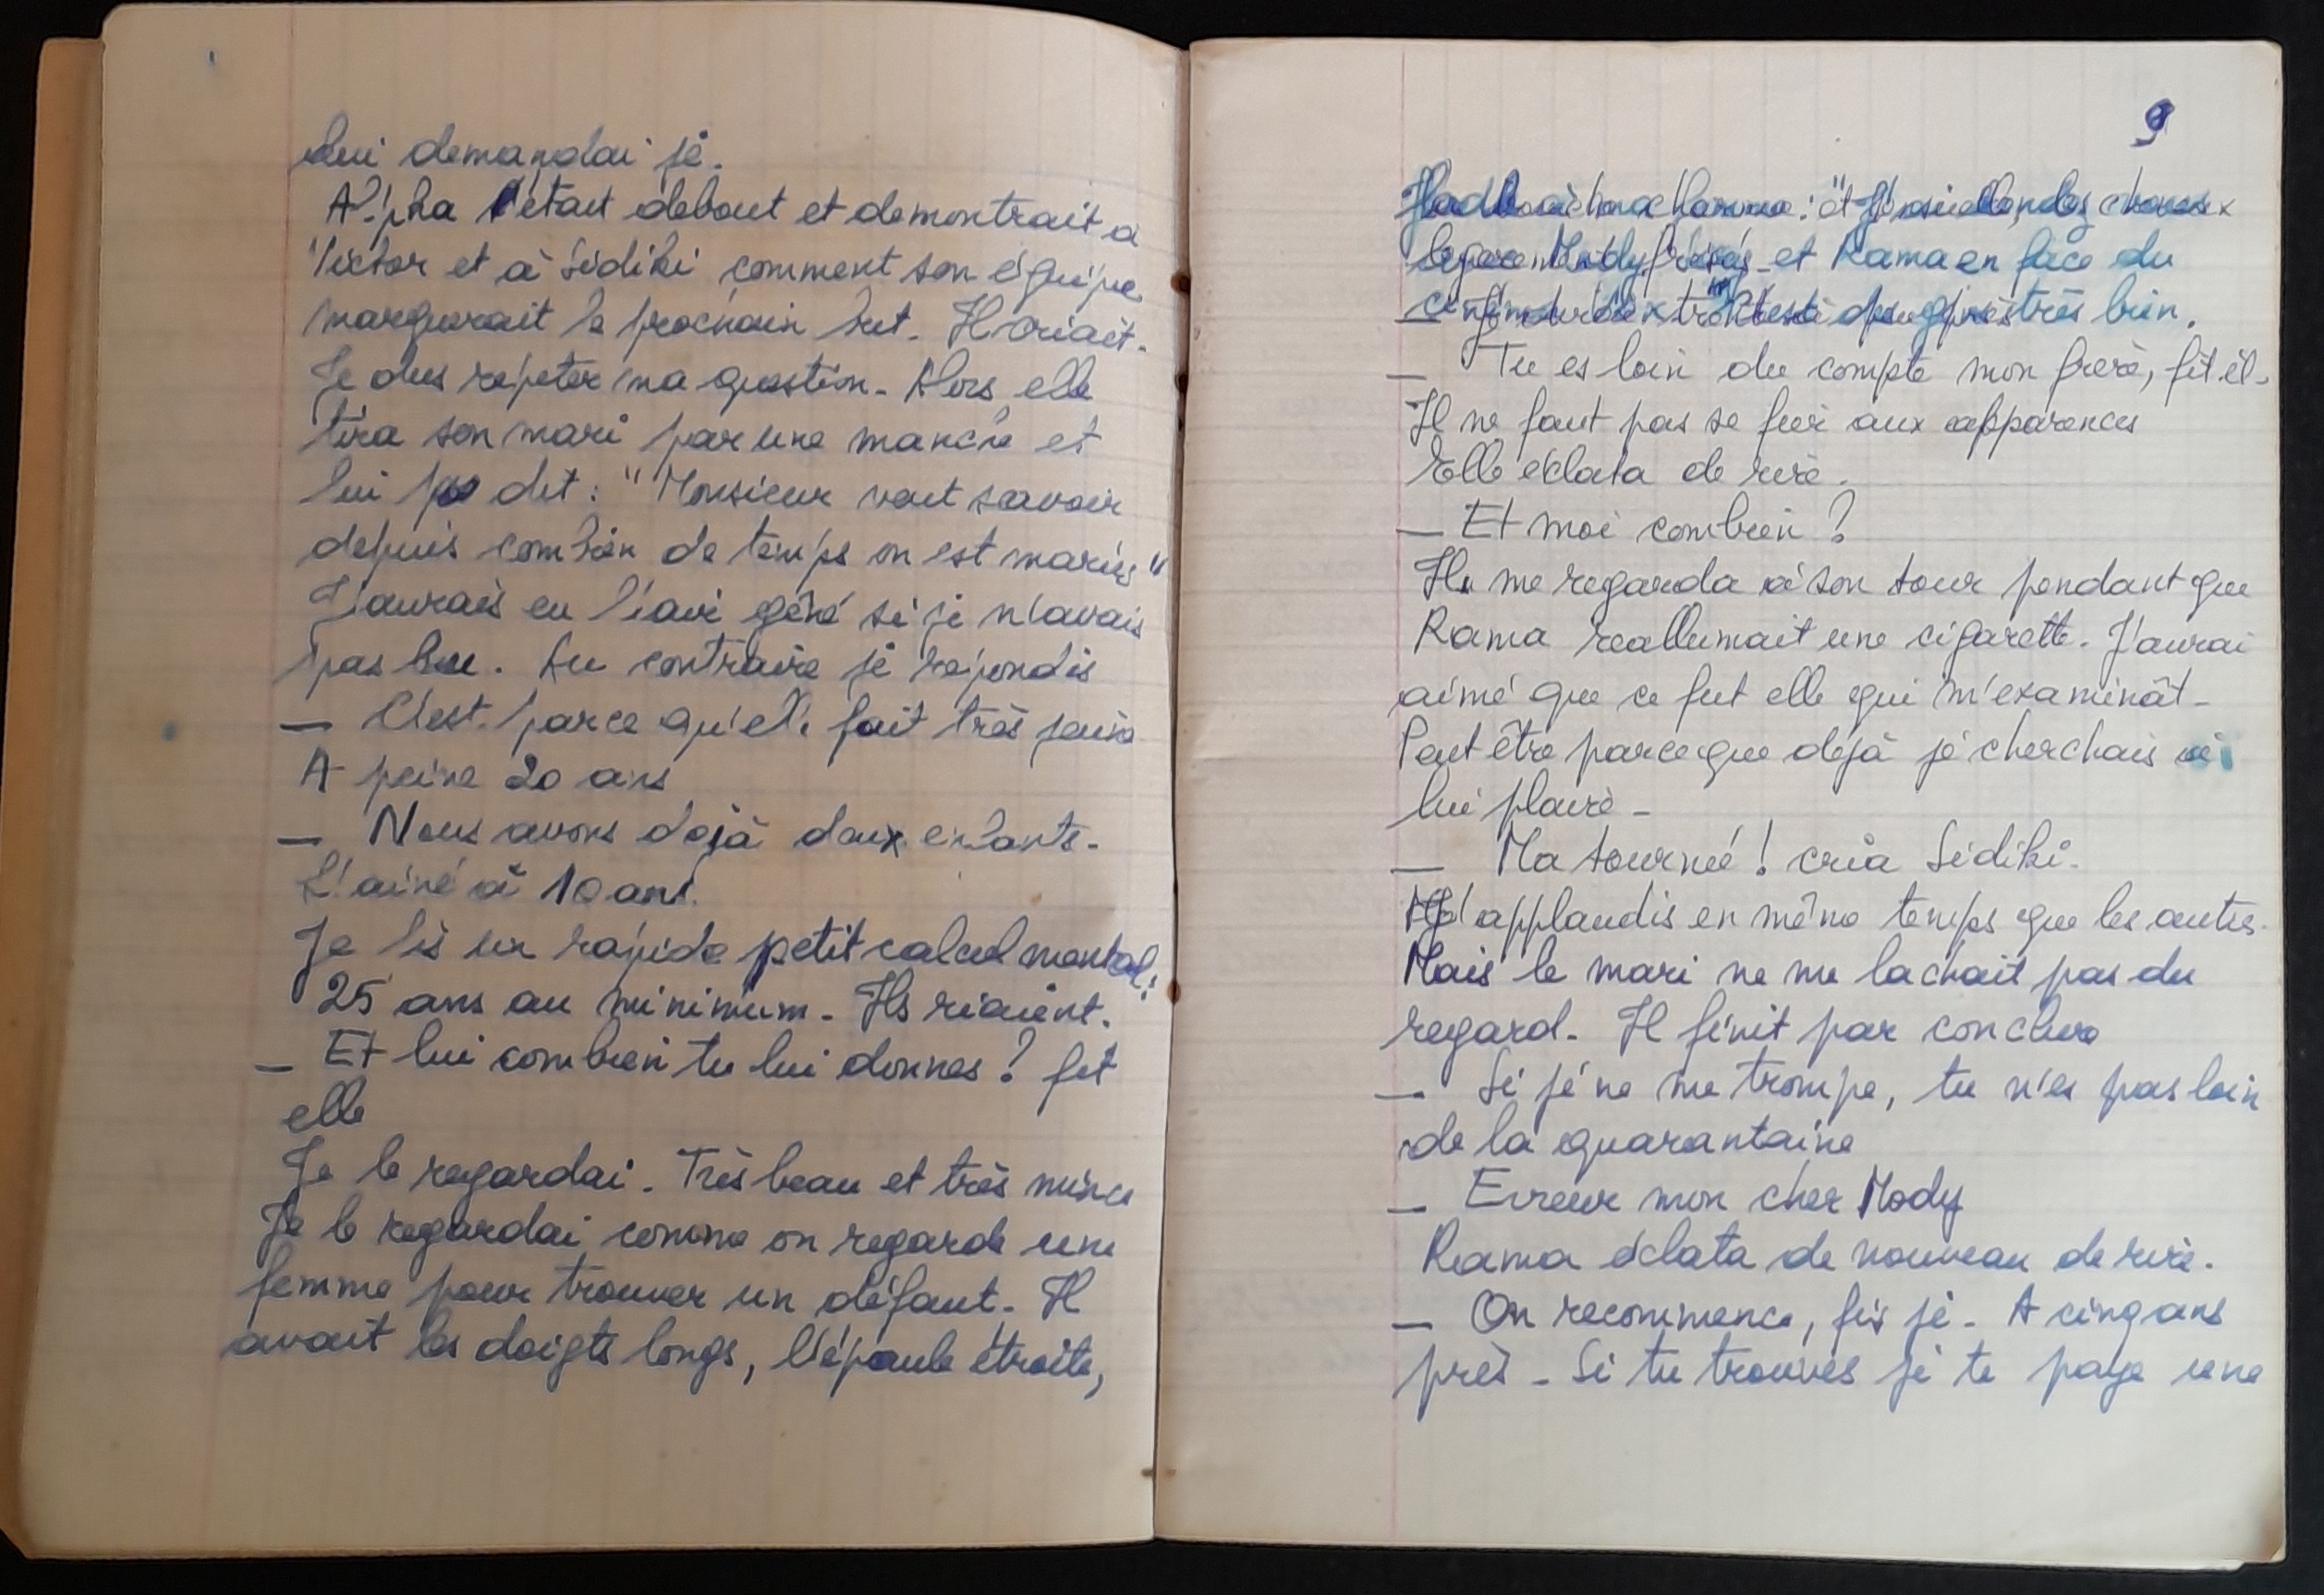 lui demandai je.
Alpha s'était debout et demontrait à
Victor et à Sidiki comment son équipe
marquerait le prochain but. Il criait.
Je dus repeter ma question. Alors, elle
tira son mari par une manche et
lui dit : "Monsieur veut savoir
depuis combien de temps on est mariés"
J'aurais eu l'air géné si je n'avais
pas bu. Au contraire je repondis
— C'est parce qu'elle fait très jeune
A peine 20 ans
— Nous avons dejà deux enfants.
L'ainé à 10 ans.
Je fis un rapide petit calcul mental :
25 ans au minimum. Ils riaient.
— Et lui combien tu lui donnes ? fit
elle
Je le regardai. Très beau et très mince
Je le regardai comme on regarde une
femme pour trouver un défaut. Il
avait les doigts longs, l'épaule étroite,
9
et Rama en face du
très bien.
— Tu es loin du compte mon frère, fit il.
Il ne faut pas se fier aux apparences
Elle éclata de rire.
— Et moi combien ?
Il me regarda à son tour pendant que
Rama reallumait une cigarette. J'aurai
aimé que ce fut elle qui m'examinât.
Peut être parceque déjà je cherchais à
lui plaire.
— Ma tournée ! cria Sidiki.
J'applaudis en même temps que les autres.
Mais le mari ne me lachait pas du
regard. Il finit par conclure
— Si je ne me trompe, tu n'es pas loin
de la quarantaine
— Erreur mon cher Mody
Rama éclata de nouveau de rire.
— On recommence, fis je. A cinq ans
près. Si tu trouves je te paye une